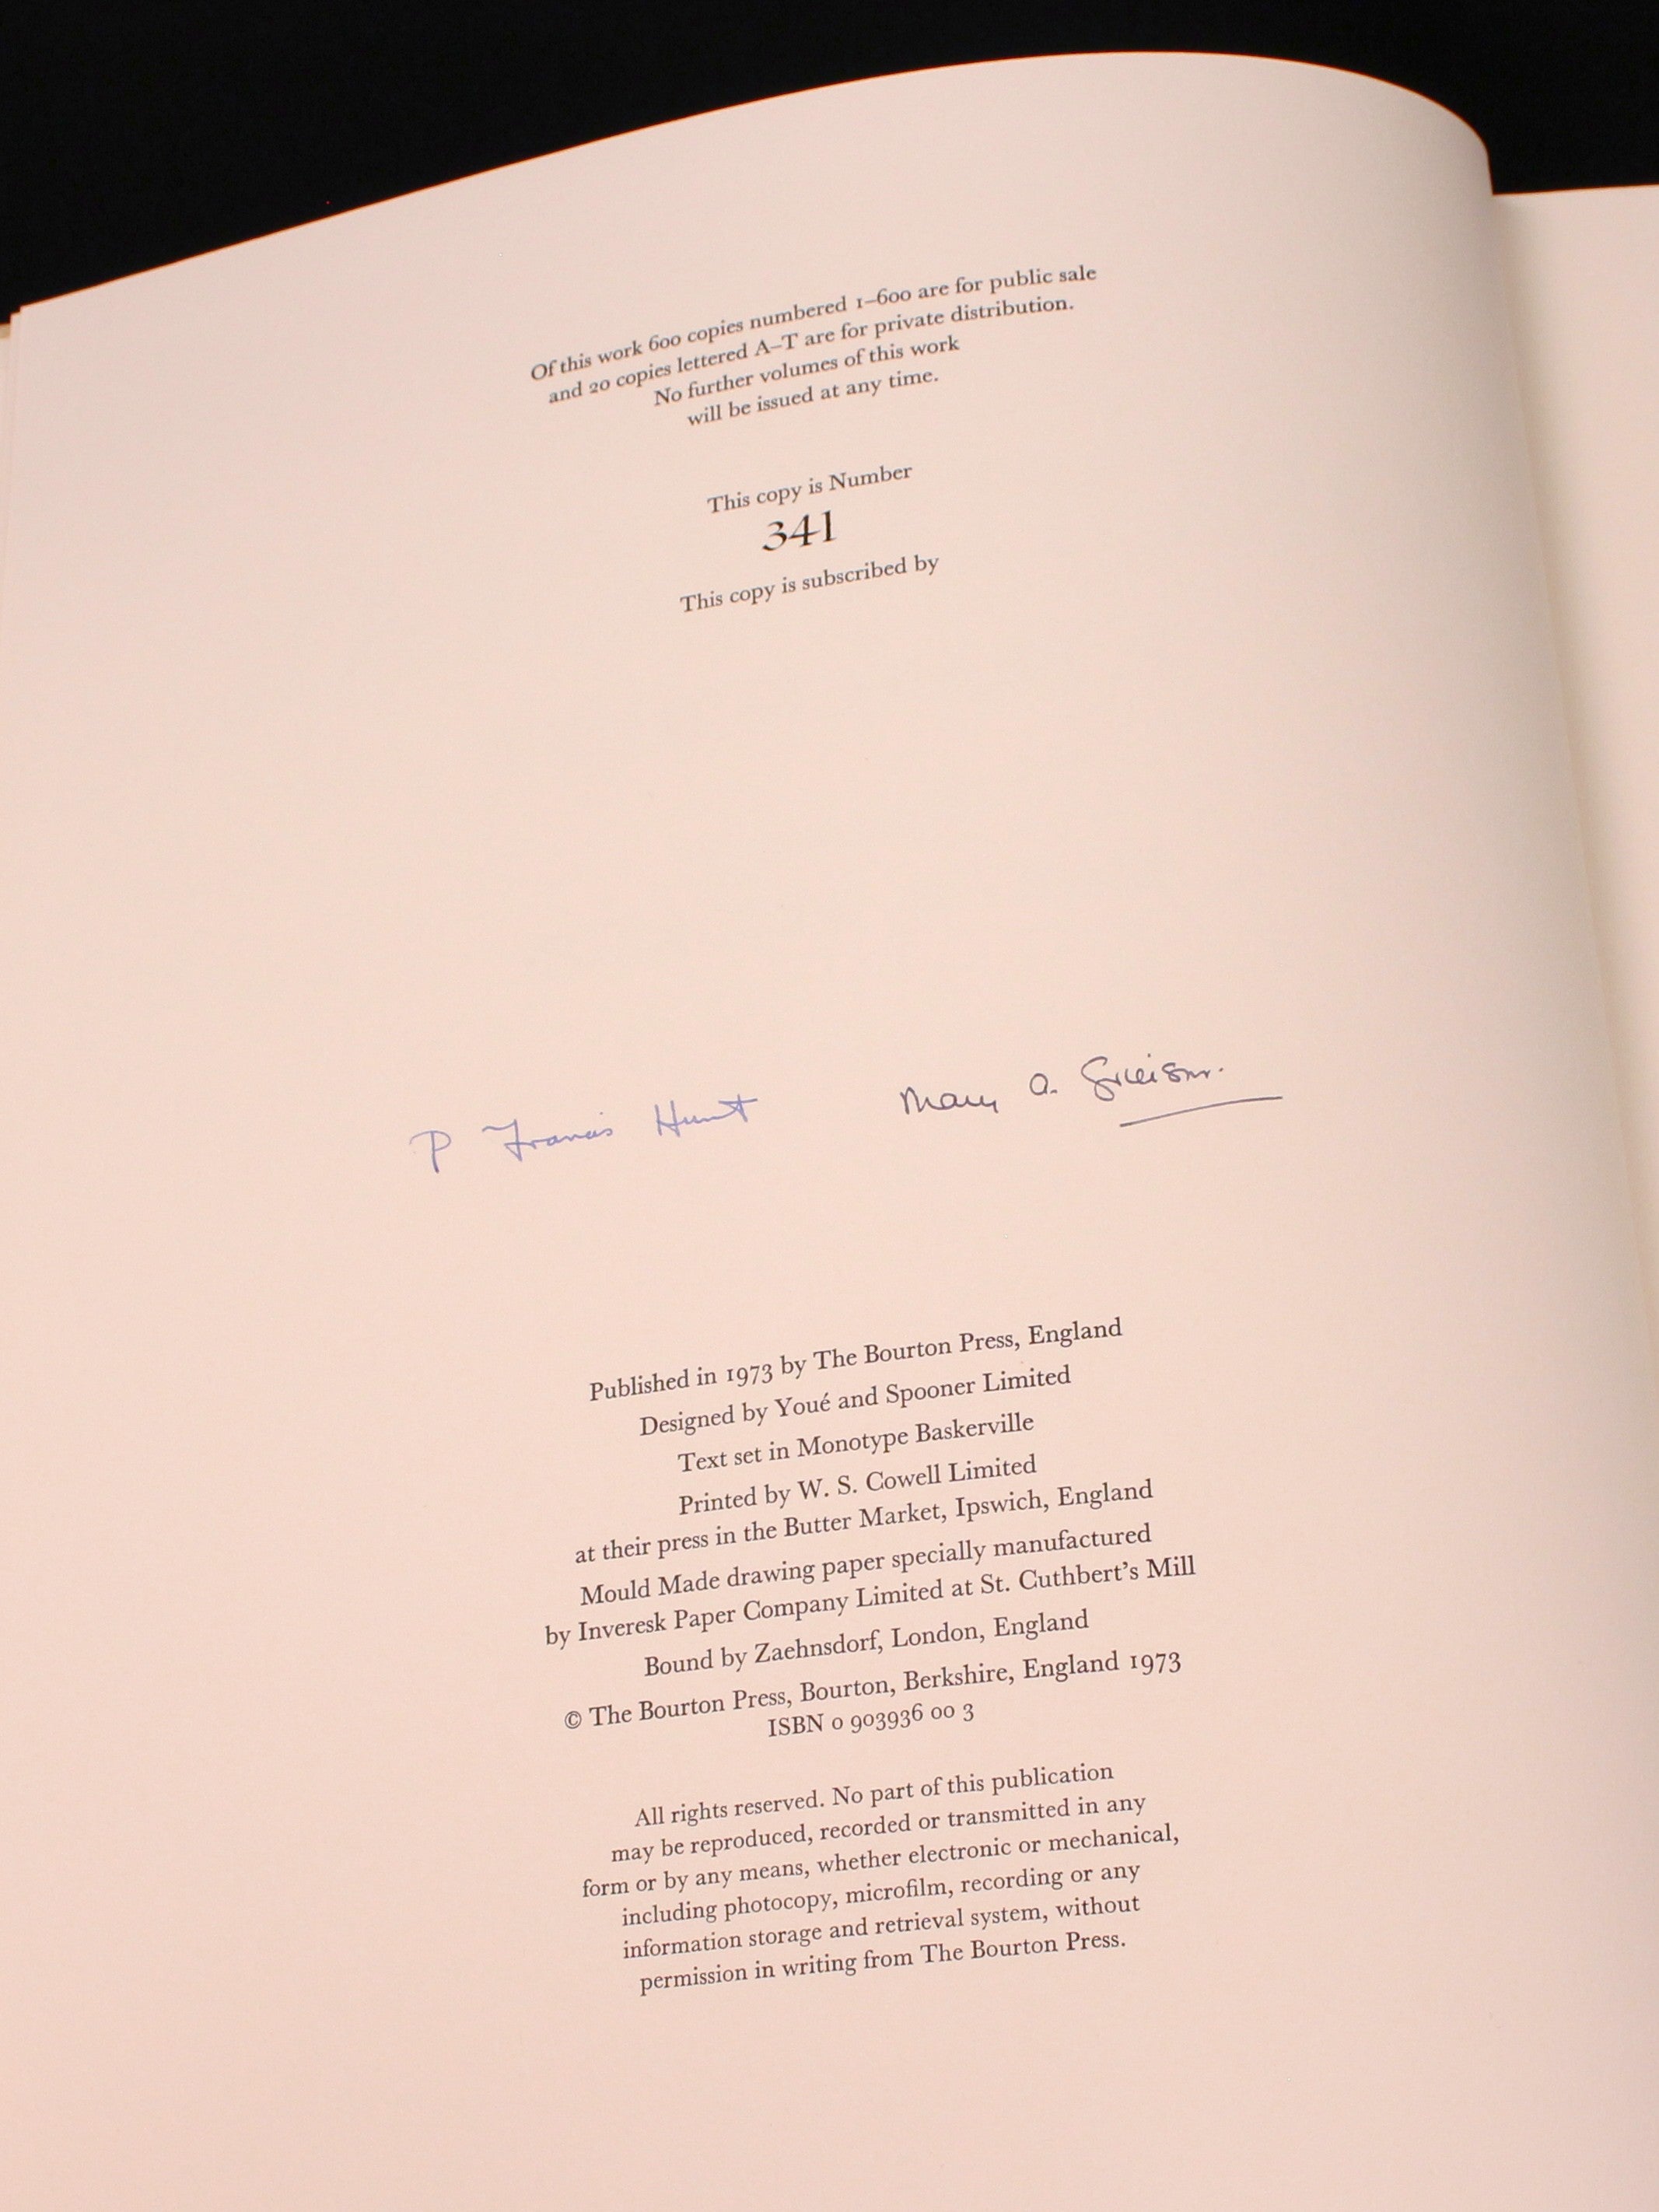 Of this work 600 copies numbered 1–600 are for public sale
and 20 copies lettered A–T are for private distribution.
No further volumes of this work
will be issued at any time.
This copy is Number
341
This copy is subscribed by
P Francis Hunt
Mary A.
Published in 1973 by The Bourton Press, England
Designed by Youé and Spooner Limited
Text set in Monotype Baskerville
Printed by W. S. Cowell Limited
at their press in the Butter Market, Ipswich, England
Mould Made drawing paper specially manufactured
by Inveresk Paper Company Limited at St. Cuthbert's Mill
Bound by Zaehnsdorf, London, England
© The Bourton Press, Bourton, Berkshire, England 1973
ISBN 0 903936 00 3
All rights reserved. No part of this publication
may be reproduced, recorded or transmitted in any
form or by any means, whether electronic or mechanical,
including photocopy, microfilm, recording or any
information storage and retrieval system, without
permission in writing from The Bourton Press.